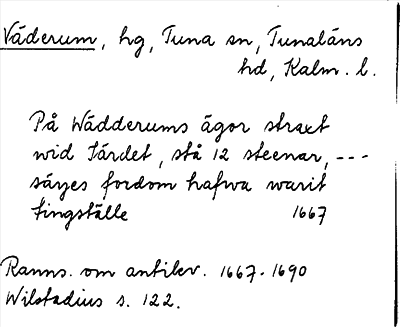 Väderum, hg, Tuna sn, Tunaläns
hd, Kalm. l.
På Wädderums ägor straxt
wid Tärdet, stå 12 steenar, ---
säyes fordom hafwa warit
tingställe 1667
Ranns. om antikv. 1667-1690
Wilstadius s. 122.